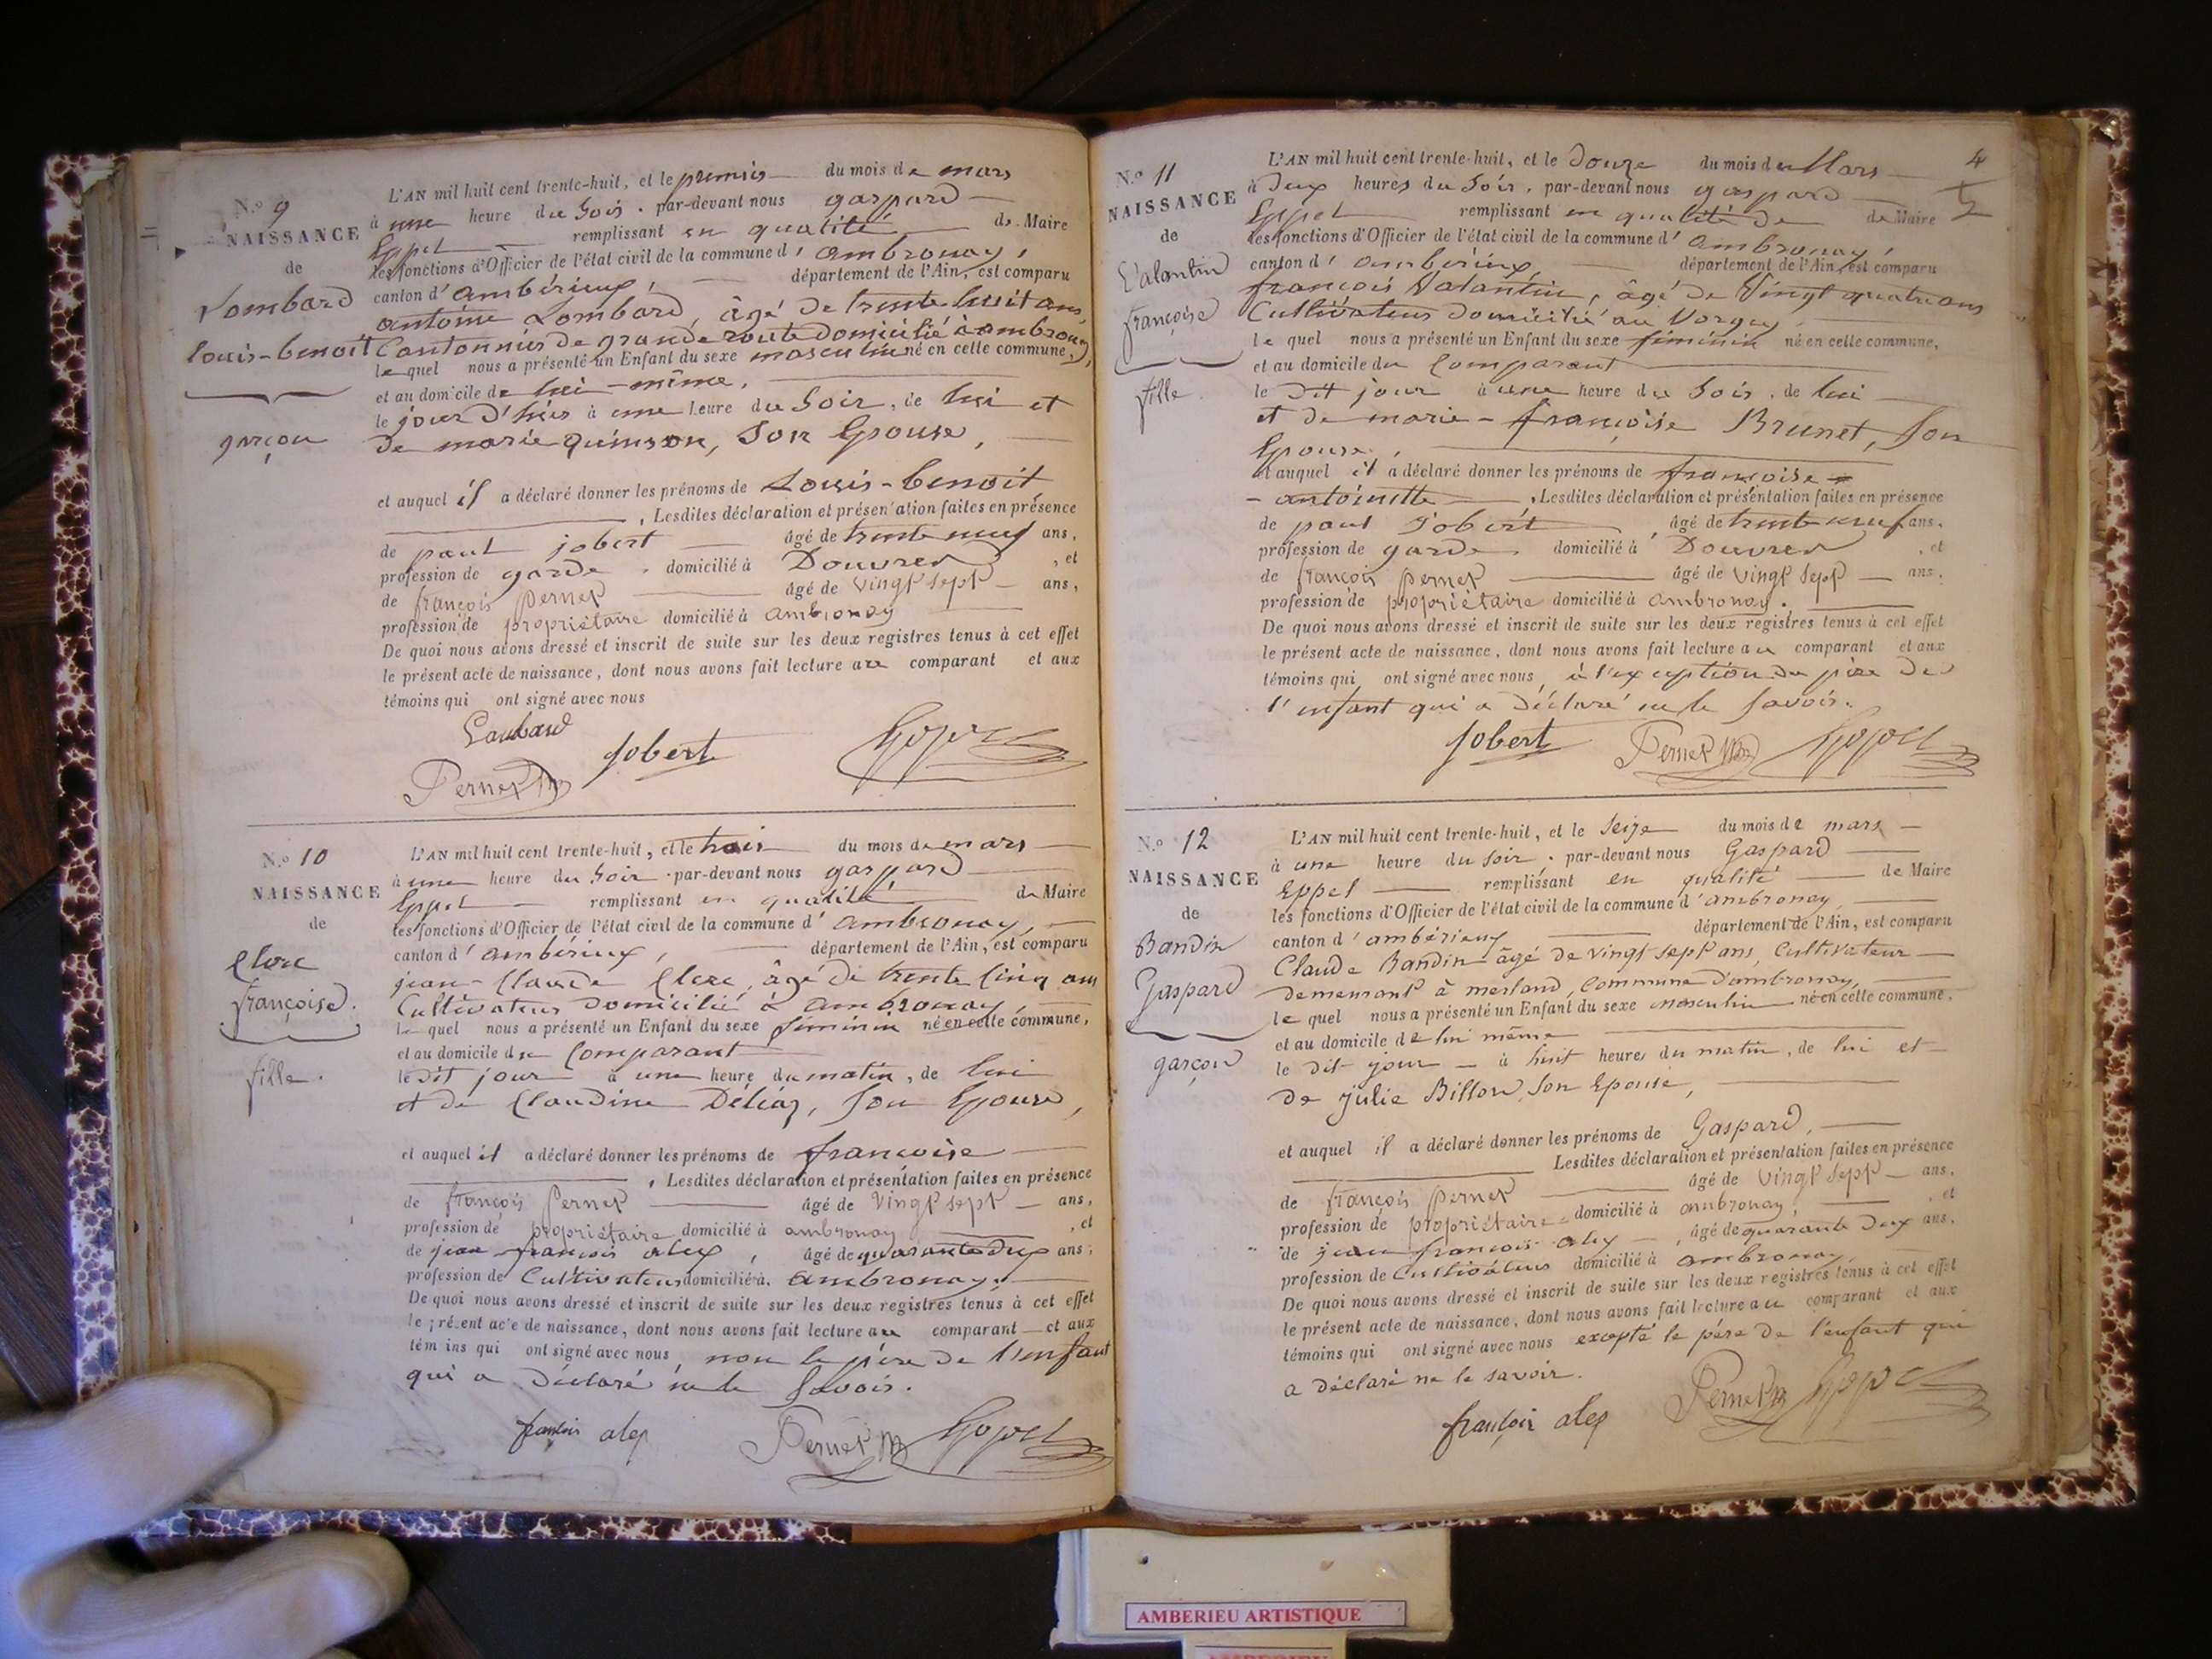 N.o 9
NAISSANCE
de
Lombard
louis-benoit
garçon
L'AN mil huit cent trente-huit, et le premier du mois de mars
à une heure du Soir. par-devant nous gaspard
Eppel remplissant en qualité de Maire
les fonctions d'Officier de l'état civil de la commune d' ambronay,
canton d' ambérieux, département de l'Ain, est comparu
antoine Lombard, âgé de trente huit ans,
Cantonnier de grande route Domicilié à ambronay,
le quel nous a présenté un Enfant du sexe masculin né en celle commune,
et au domicile de lui-même.
le jour d'hier à une heure du Soir, de lui et
de marie quinson, Son Epouse,
et auquel il a déclaré donner les prénoms de Louis-benoit
, Lesdites déclaration et présentation faites en présence
de paul jobert âgé de trente neuf ans,
profession de garde, domicilié à Douvres, et
de françois pernet âgé de vingt sept ans,
profession de propriétaire domicilié à ambronay
De quoi nous avons dressé et inscrit de suite sur les deux registres tenus à cet effet
le présent acte de naissance, dont nous avons fait lecture au comparant et aux
témoins qui ont signé avec nous
Jobert
Pernet
N.o 10
NAISSANCE
de
Clerc
françoise.
fille.
L'AN mil huit cent trente-huit, et le trois du mois de mars
à une heure du Soir. par-devant nous gaspard
Eppel remplissant en qualité de Maire
les fonctions d'Officier de l'état civil de la commune d' ambronay,
canton d' ambérieux, département de l'Ain, est comparu
jean-Claude Clerc, âgé de trente cinq ans
Cultivateur Domicilié à ambronay,
le quel nous a présenté un Enfant du sexe féminin né en celle commune,
et au domicile du Comparant
le dit jour à une heure du matin, de lui
et de Claudine, Son Epouse,
et auquel il a déclaré donner les prénoms de françoise
, Lesdites déclaration et présentation faites en présence
de françois pernet âgé de vingt sept ans,
profession de propriétaire domicilié à ambronay, et
de jean françois alex, âgé de quarante deux ans,
profession de Cultivateur domicilié à ambronay.
De quoi nous avons dressé et inscrit de suite sur les deux registres tenus à cet effet
le présent acte de naissance, dont nous avons fait lecture au comparant et aux
témoins qui ont signé avec nous, non le père de l'enfant
qui a Déclaré ne le Savoir.
françois alex
Pernet
4
N.o 11
NAISSANCE
de
Valantin
françoise
fille
L'AN mil huit cent trente-huit, et le Douze du mois de Mars
à Deux heures du Soir, par-devant nous gaspard
Eppel remplissant en qualité de de Maire
les fonctions d'Officier de l'état civil de la commune d' ambronay,
canton d' ambérieux département de l'Ain, est comparu
françois Valantin, âgé de Vingt quatre ans
Cultivateur domicilié au
le quel nous a présenté un Enfant du sexe féminin né en celle commune,
et au domicile du Comparant
le Dit jour à une heure du Soir, de lui
et de marie-françoise Brunet, Son
Epouse,
et auquel il a déclaré donner les prénoms de françoise-
-antoinette, Lesdites déclaration et présentation faites en présence
de paul Jobert, âgé de trente neuf ans,
profession de garde, domicilié à Douvres, et
de françois pernet âgé de vingt sept ans,
profession de propriétaire domicilié à ambronay.
De quoi nous avons dressé et inscrit de suite sur les deux registres tenus à cet effet
le présent acte de naissance, dont nous avons fait lecture au comparant et aux
témoins qui ont signé avec nous, à l'exception du père de
l'enfant qui a Déclaré ne le Savoir.
Jobert Pernet
N.o 12
NAISSANCE
de
Bandin
Gaspard
garçon
L'AN mil huit cent trente-huit, et le Seize du mois de mars
à une heure du soir. par-devant nous Gaspard
Eppel remplissant en qualité de Maire
les fonctions d'Officier de l'état civil de la commune d' ambronay,
canton d' ambérieux département de l'Ain, est comparu
Claude Bandin âgé de vingt sept ans, Cultivateur
demeurant à merland, commune d'ambronay,
le quel nous a présenté un Enfant du sexe masculin né en celle commune,
et au domicile de lui même
le dit jour à huit heures du matin, de lui et
de julie Billon, Son Epouse,
et auquel il a déclaré donner les prénoms de Gaspard,
Lesdites déclaration et présentation faites en présence
de françois pernet âgé de vingt sept ans,
profession de propriétaire domicilié à ambronay, et
de jean françois alex, âgé de quarante deux ans,
profession de Cultivateur domicilié à ambronay,
De quoi nous avons dressé et inscrit de suite sur les deux registres tenus à cet effet
le présent acte de naissance, dont nous avons fait lecture au comparant et aux
témoins qui ont signé avec nous excepté le père de l'enfant qui
a déclaré ne le savoir.
françois alex Pernet
AMBERIEU ARTISTIQUE